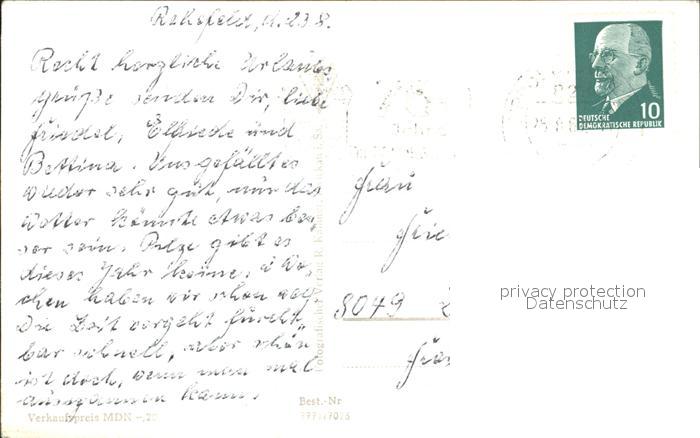 Rehefeld, d. 23.8.
Recht herzliche Urlaubs
grüße senden Dir, liebe
Friedel, Elfriede und
Bettina. Uns gefällt es
wieder sehr gut, nur das
Wetter könnte etwas bes
ser sein. Pilze gibt es
dieses Jahr keine. 2 Wo-
chen haben wir schon weg.
Die Zeit vergeht furcht
bar schnell, aber schön
ist doch, wenn man mal
ausspannen kann.
Verkaufspreis MDN -,20
Best.-Nr
DEUTSCHE
DEMOKRATISCHE REPUBLIK
10
Frau
8049
privacy protection
Datenschutz